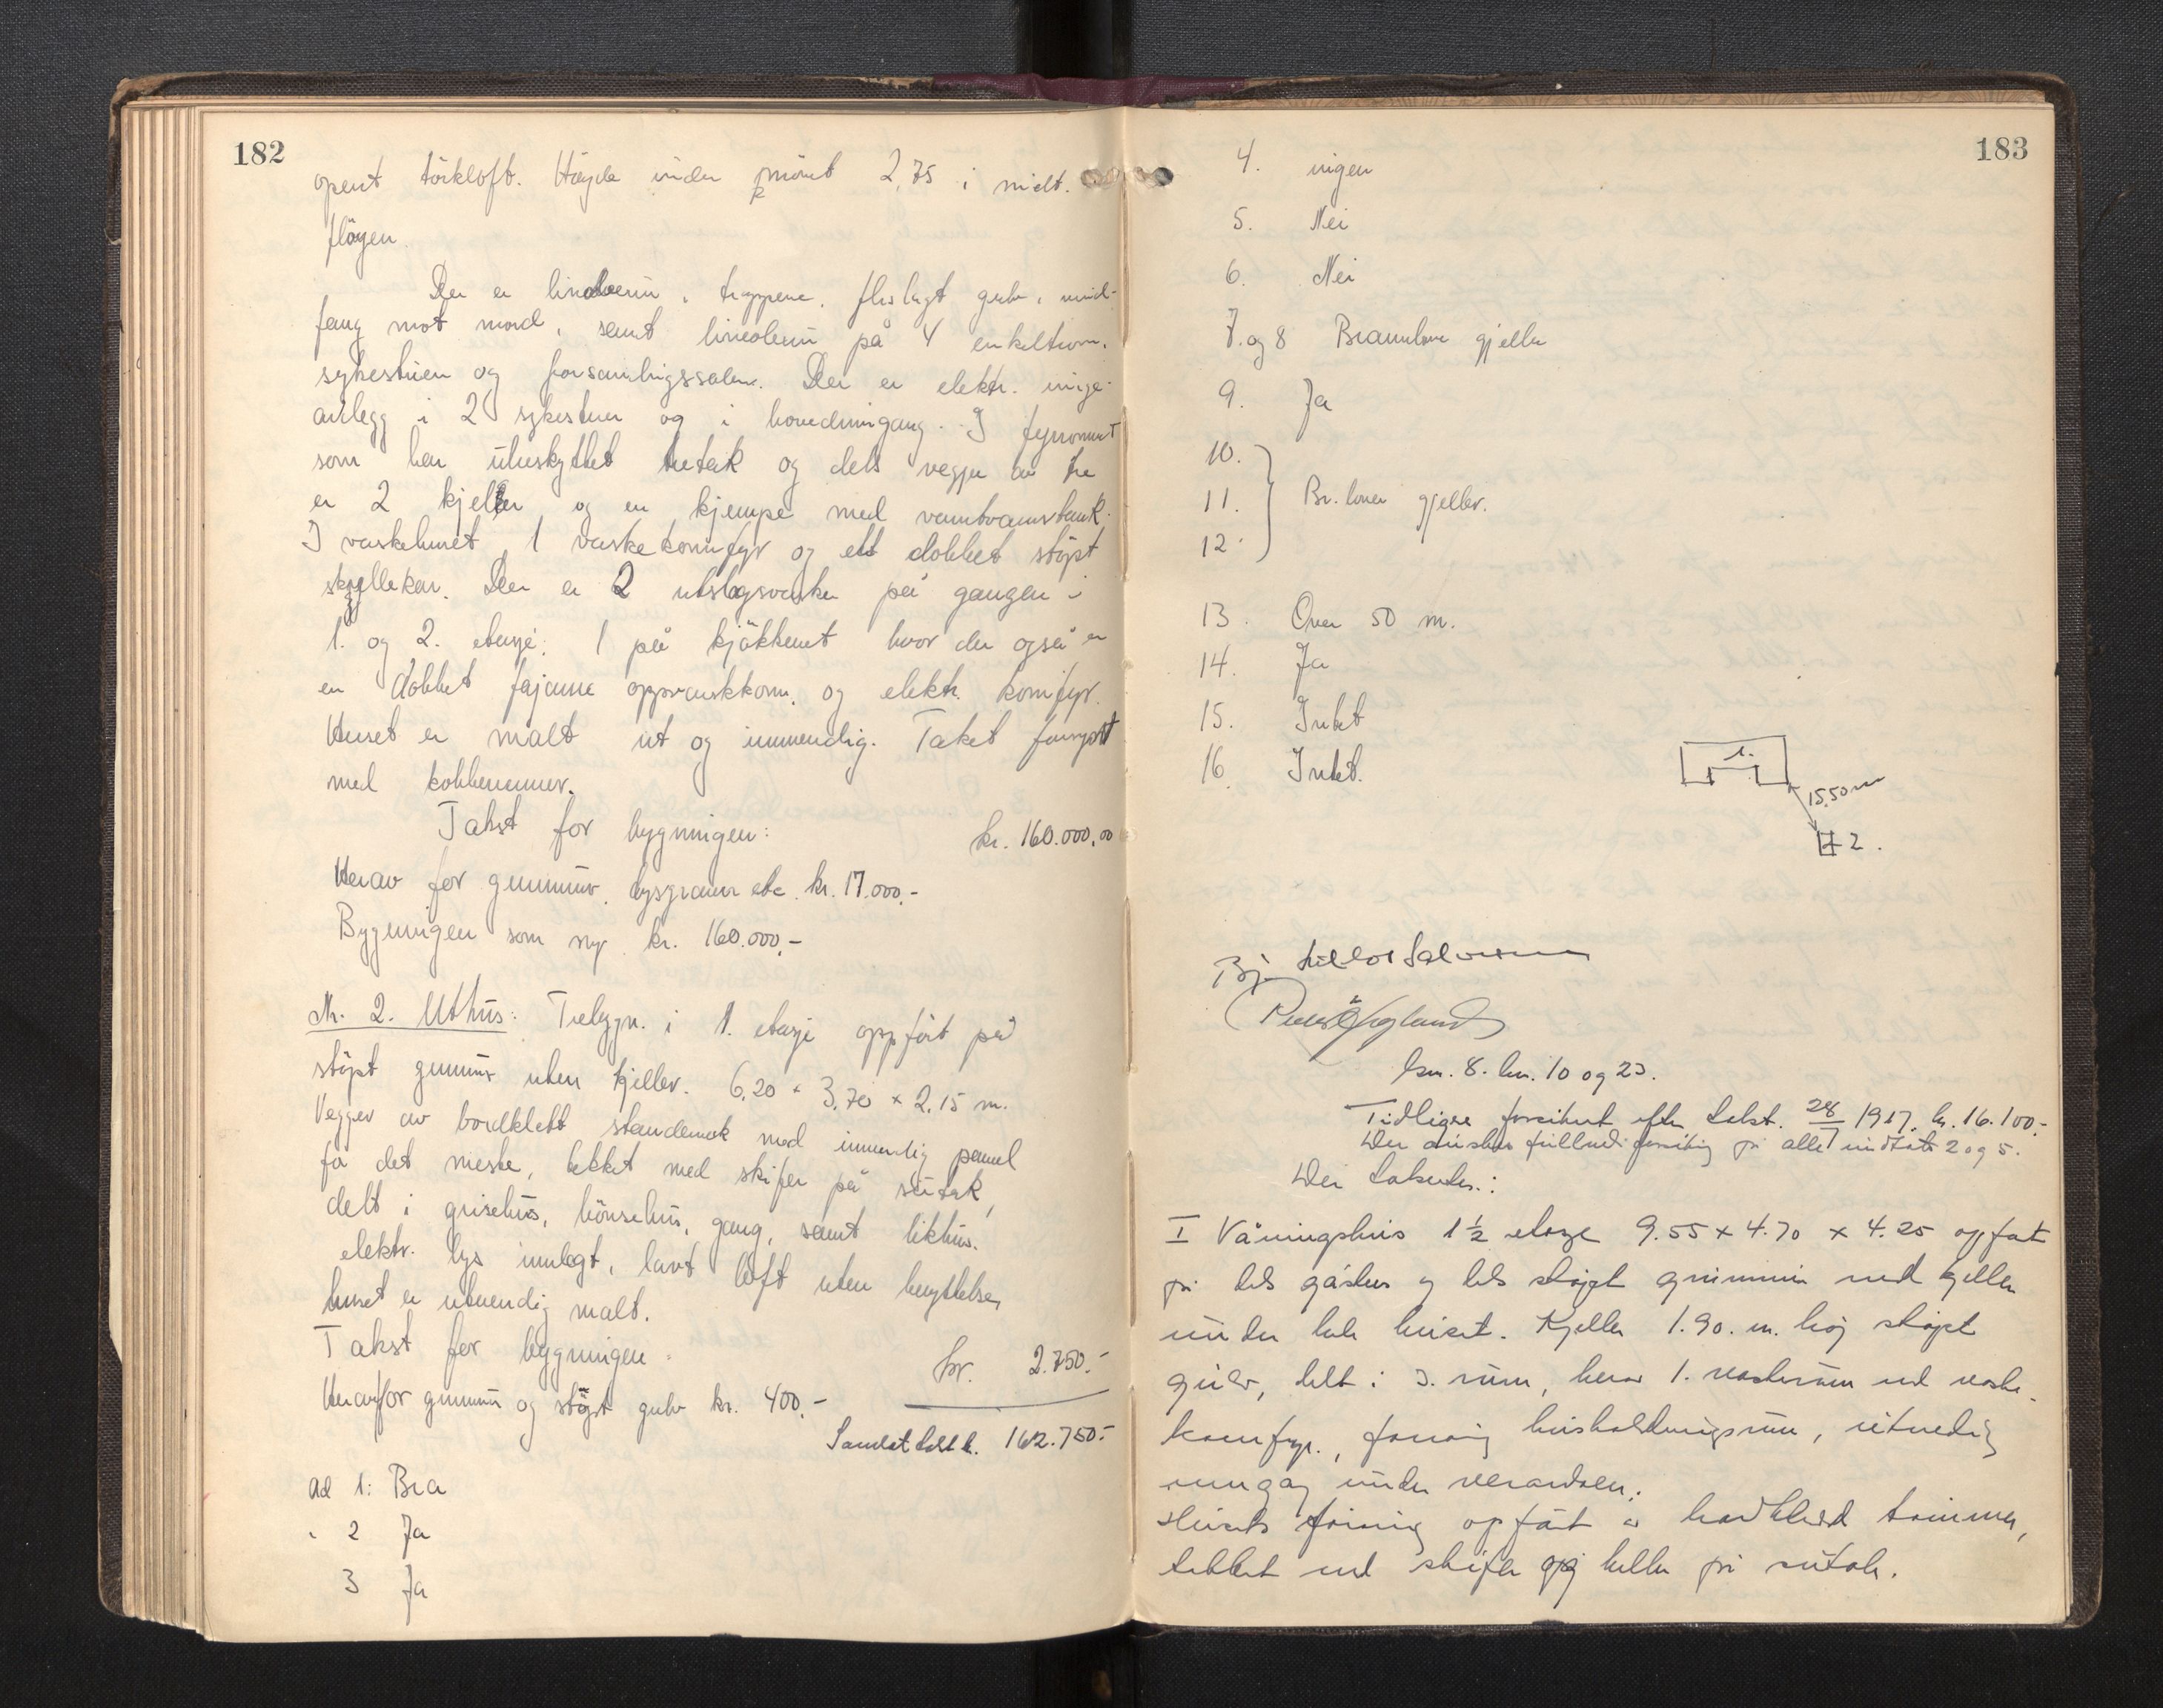 182
opent törkloft. Höyde under mönet 2,75 i midt-
flöyen.
Der er linoleum i trappene, flislagt gulv i vind-
fang mot nord, samt linoleum på 4 enkeltrom,
sykestuen og forsamlingssalen. Der er elektr. ringe-
anlegg i 2 sykestuer og i hovedinngang. I fyrrommet
som har ubeskyttet tretak og dels vegger av tre
er 2 kjeler og en kjempe med varmtvannstank.
I vaskehuset 1 vaskekomfyr og ett dobbet stöpt
skyllekar. Der er 2 utslagsvasker på gangen i
1. og 2. etasje, 1 på kjökkenet hvor der også er
en dobbet fajanse oppvaskkom, og elektr. komfyr.
Huset er malt ut og innvendig. Taket forsynt
med kobberrenner.
Takst for bygningen: kr. 160.000,00
Herav for grunnmur, lysgraver etc. kr. 17.000,-
Bygningen som ny kr. 160.000,-
Nr. 2. Uthus: Trebygn. i 1. etasje oppfört på
stöpt grunnmur uten kjeller. 6,20 × 3,70 × 2,15 m.
Vegger av bordkledt standerverk med innvendig panel
for det meste, tekket med skifer på sutak,
delt i grisehus, hönsehus, gang, samt likhus.
elektr. lys innlagt, lavt loft uten benyttelse,
huset er utvendig malt.
Takst for bygningen: kr. 2.750.-
Heravfor grunnmur og stöpt gulv kr. 400,-
Samlet takst kr. 162.750.-
Ad 1: Bra
" 2 Ja
3 Ja
183
4. ingen
5. Nei
6. Nei
7. og 8 Brannlove gjelder
9. Ja
10.
11. Br. loven gjelder.
12.
13. Over 50 m.
14. Ja
15. Intet
16. Intet.
1.
15,50 m
2.
Peder
bn. 10 og 23.
Tidligere forsikret efter takst. 28/ 1917. kr. 16.100.-
Der ønskes forsikring på alle undtatt 2 og 5.
Der takseres.:
I Våningshus 1½ etage 9.55 × 4.70 × 4.25 opført
på dels gråsten og dels støpt grunnmur med kjeller
under hele huset. Kjeller 1.90. m. høj støpt
gulv, delt i 3. rum, herav 1. vaskerum med vaske-
komfyr., forøvrig husholdningsrum, utvendig
inngang under verandaen.
Husets forøvrig opført av bordklædd tømmer,
tekket med skifer og heller på sutak.